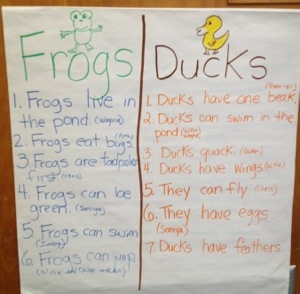 Frogs
1. Frogs live in
the pond. (Wayne)
2. Frogs eat bugs
3. Frogs are tadpoles
first. (Chris)
4. Frogs can be
green. (Saniya)
5. Frogs can swim
(Jimmy)
6. Frogs can jump.
Ducks
1. Ducks have one beak.
2. Ducks can swim in the
pond
3. Ducks quack.
4. Ducks have wings
5. They can fly (Chris)
6. They have eggs
(Saniya)
7. Ducks have feathers.